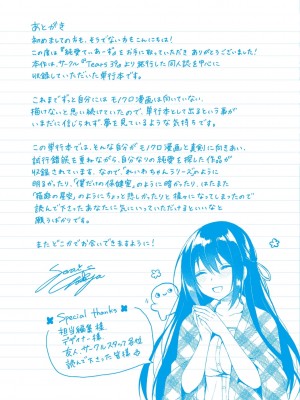 あとがき
初めましての方も、そうでない方もこんにちは！
この度は『純愛てぃあーず』をお手に取っていただき ありがとうございます！
本作は、サークル『Tears 39』より発行した同人誌を中心に
収録していただいた単行本です。
これまでずっと自分には モノクロ漫画は向いていない、
描けないと思い続けていたので、単行本として出るという事が
いまだに信じられず、夢を見ているような気持ちです。
この単行本では、そんな自分が モノクロ漫画と真剣に向きあい、
試行錯誤を重ねながら、自分なりの純愛を探した作品が
収録されています。なので、「れいわちゃんシリーズ」のように
明るかったり、「僕だけの保健室」のように暗かったり、はたまた
「箱庭の星空」のようにちょっと悲しかったりと 様々になってしまったので
読んで下さったあなたに気にいっていただけるといいなと
願うばかりです。
またどこかでお会いできますように！
Special thanks
担当編集様
デザイナー様
友人、サークルスタッフ各位
読んで下さった皆様